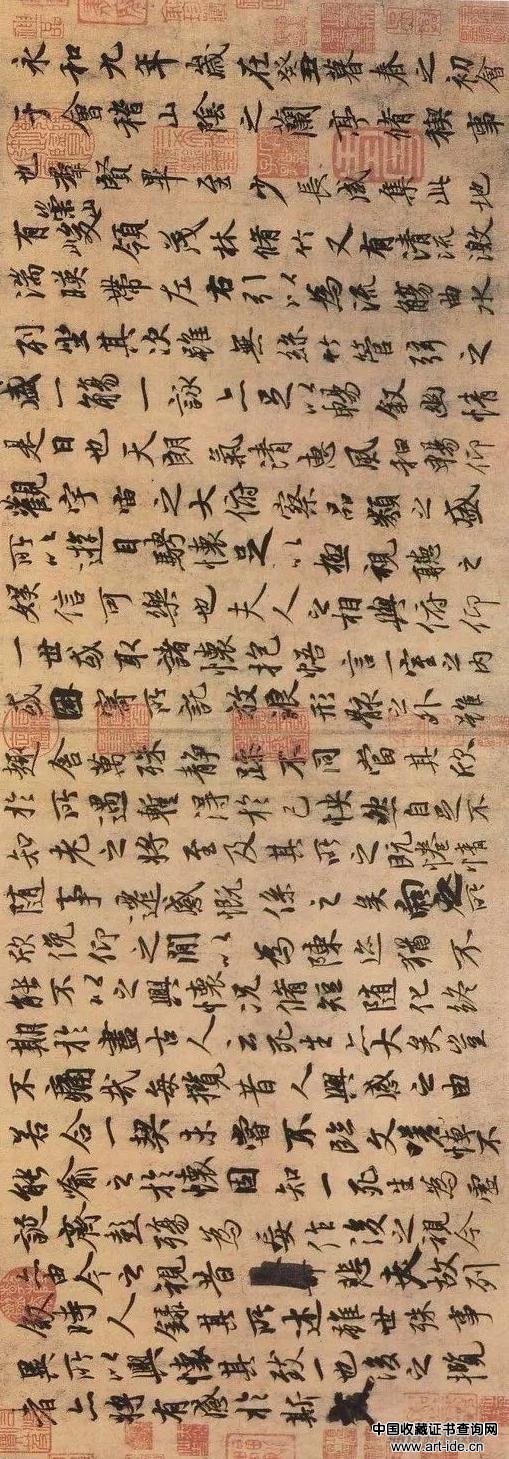 永和九年歲在癸丑暮春之初會
于會稽山陰之蘭亭脩稧事
也羣賢畢至少長咸集此地
有崇山峻領茂林脩竹又有清流激
湍暎帶左右引以為流觴曲水
列坐其次雖無絲竹管弦之
盛一觴一詠亦足以暢敘幽情
是日也天朗氣清惠風和暢仰
觀宇宙之大俯察品類之盛
所以遊目騁懷足以極視聽之
娛信可樂也夫人之相與俯仰
一世或取諸懷抱悟言一室之內
或因寄所託放浪形骸之外雖
趣舍萬殊靜躁不同當其欣
於所遇暫得於己怏然自足不
知老之將至及其所之既惓情
隨事遷感慨係之矣向之所
欣俛仰之閒以為陳迹猶不
能不以之興懷況脩短隨化終
期於盡古人云死生亦大矣豈
不痛哉每攬昔人興感之由
若合一契未嘗不臨文嗟悼不
能喻之於懷固知一死生為虛
誕齊彭殤為妄作後之視今
亦由今之視昔悲夫故列
敘時人錄其所述雖世殊事
異所以興懷其致一也後之攬
者亦將有感於斯文
中国收藏证书查询网
www.art-ide.cn